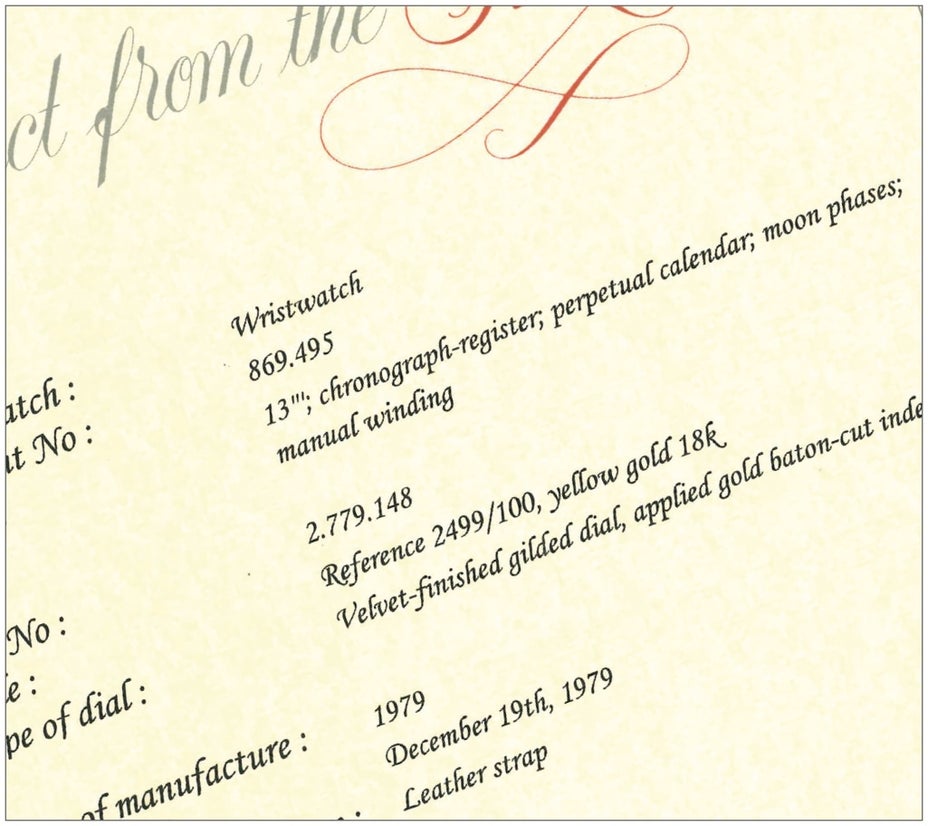 ct from the
Wristwatch
869.495
13'''; chronograph-register; perpetual calendar; moon phases;
manual winding
2.779.148
Reference 2499/100, yellow gold 18k
Velvet-finished gilded dial, applied gold baton-cut inde
1979
December 19th, 1979
Leather strap
atch :
t No :
No :
e :
pe of dial :
of manufacture :
: